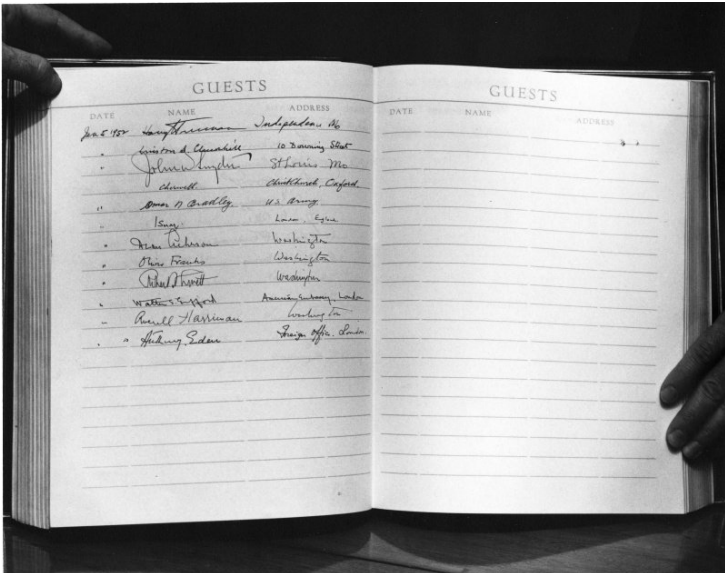 GUESTS
DATE NAME ADDRESS
Jan 5 1952 Harry S Truman Independence Mo
" Winston S. Churchill 10 Downing Street
" John W Snyder St Louis Mo
Cherwell Christchurch, Oxford
" Omar N Bradley U.S. Army
" Ismay London, England
" Dean Acheson Washington
" Oliver Franks Washington
" Robert A Lovett Washington
" Walter S Gifford American Embassy, London
" Averell Harriman Washington
" " Anthony Eden Foreign Office. London
GUESTS
DATE NAME ADDRESS